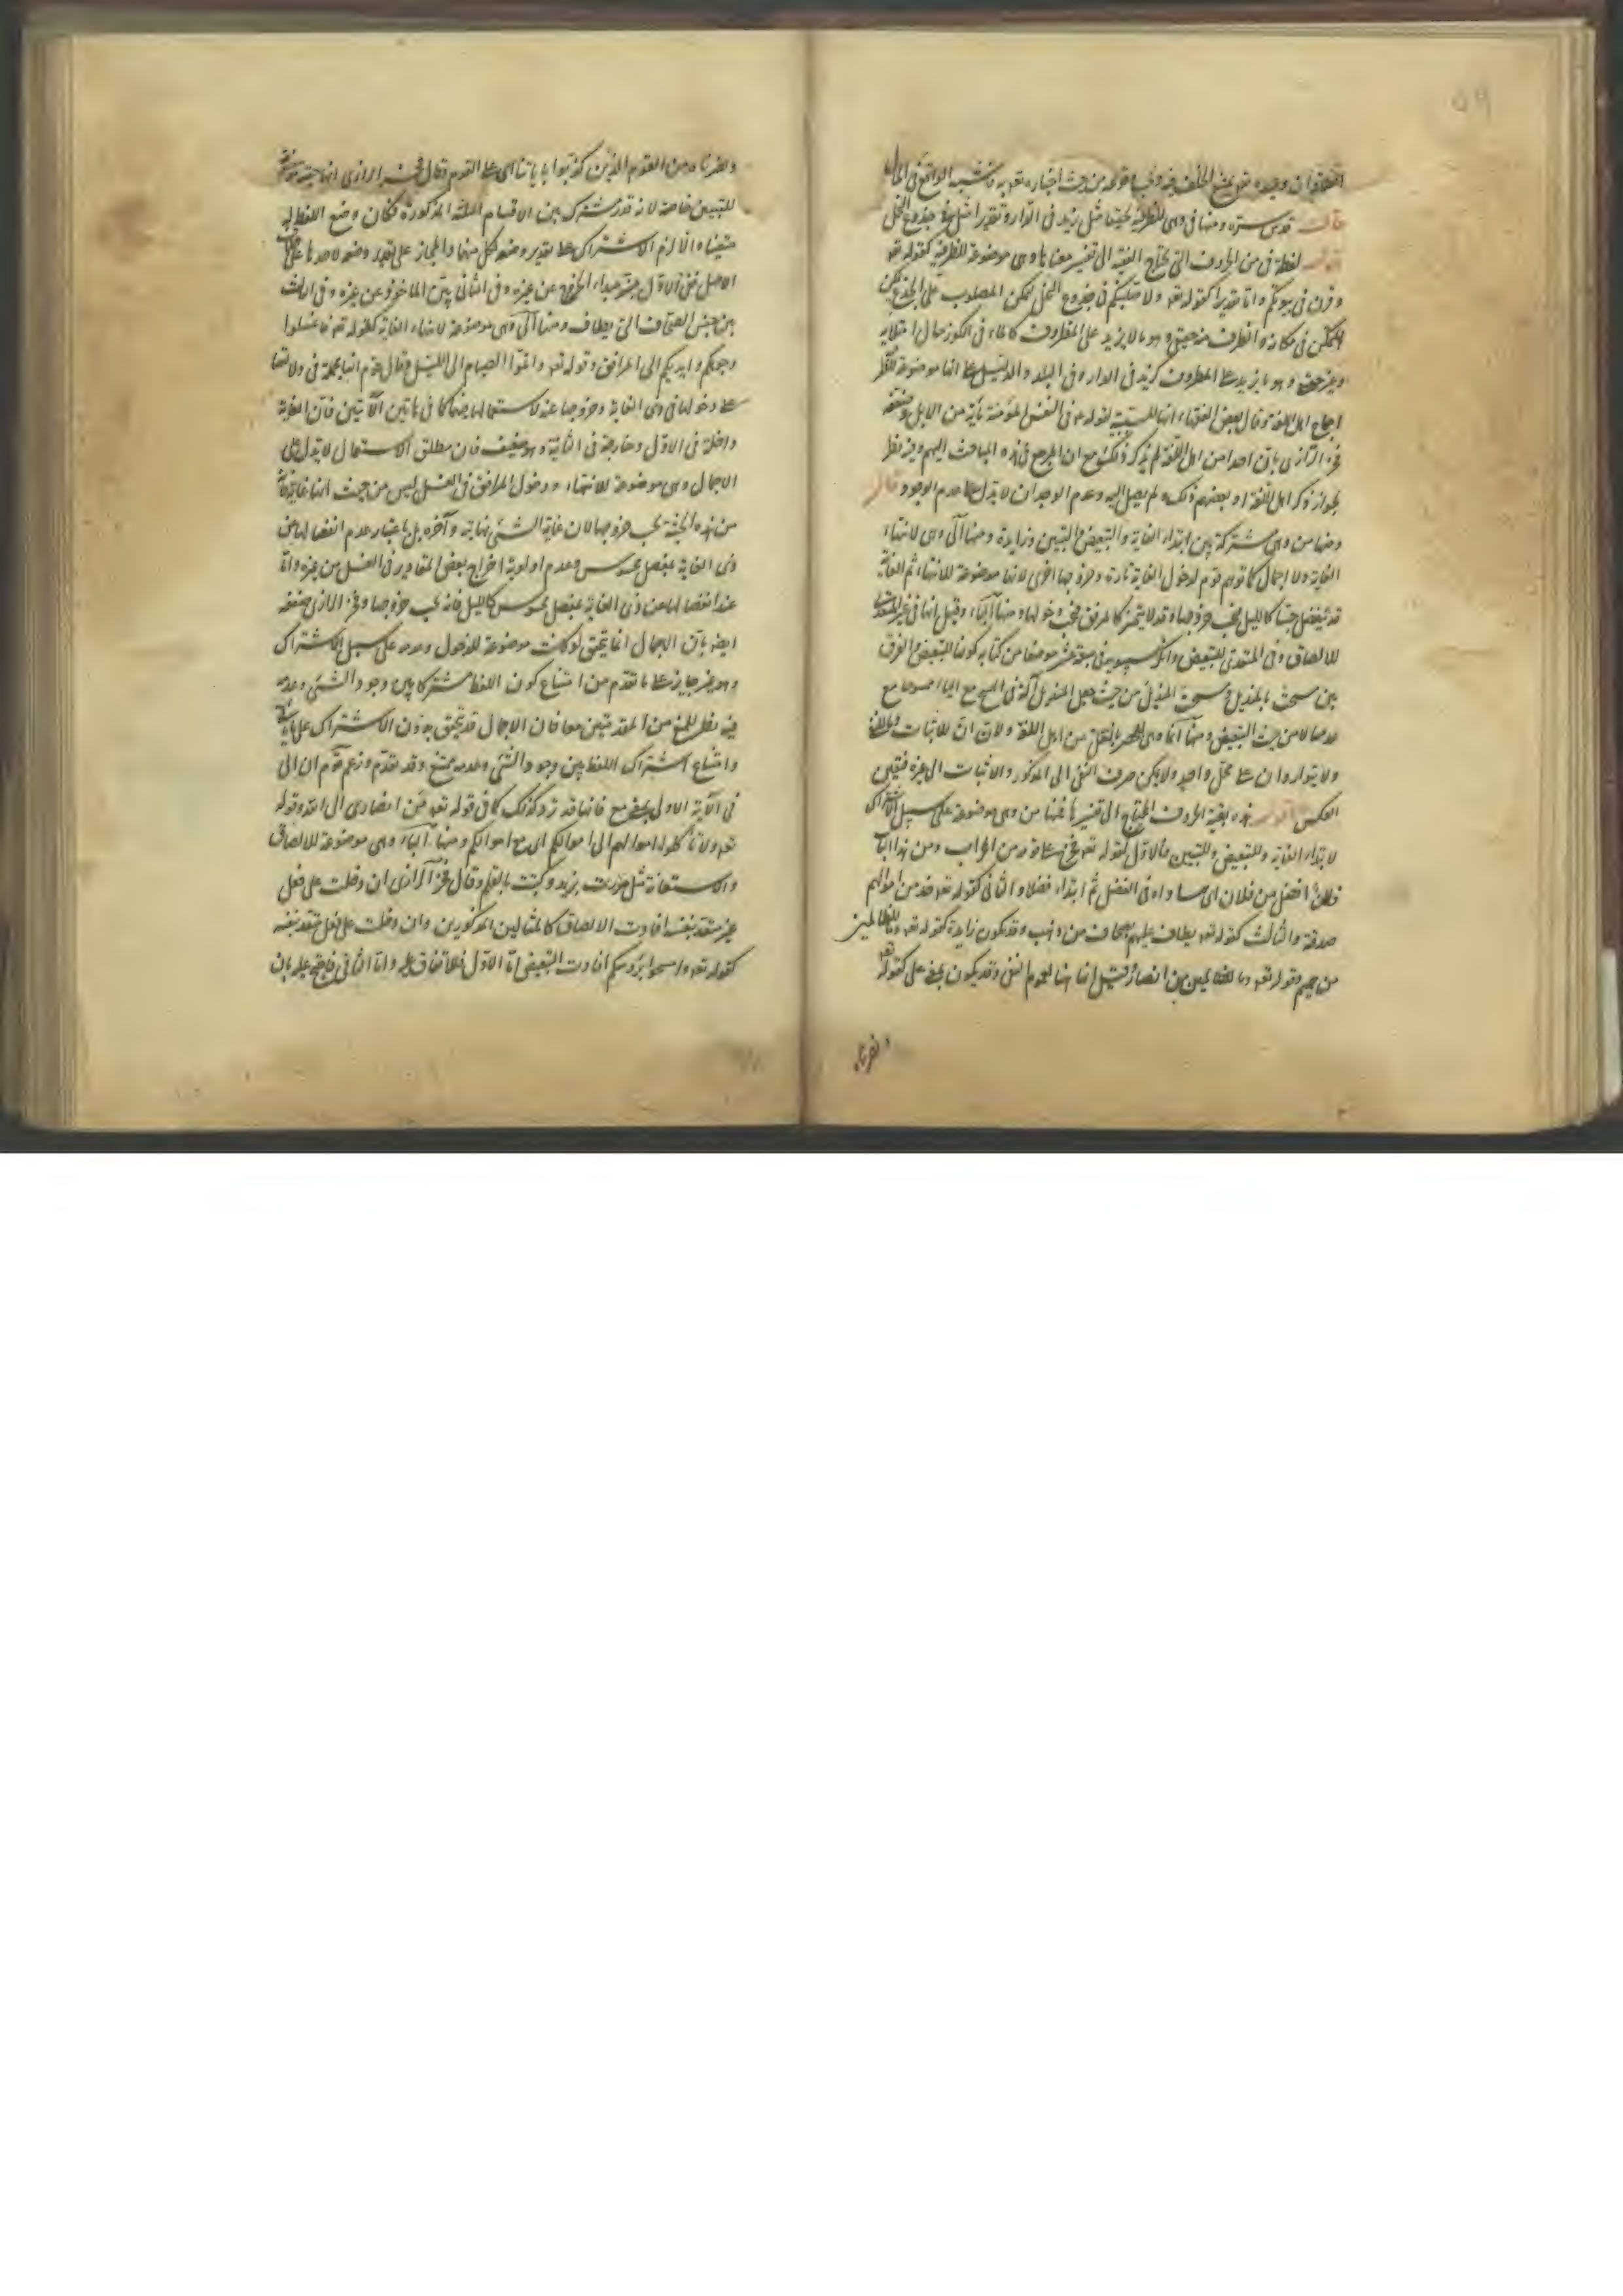 قدس سره ومنها فى وهى للظرفية تحقيقا مثل زيد فى الدار وتقديرا مثل فى جذوع النخل
لفظة فى من الحروف التى يحتاج الفقيه الى تفسير معناها وهى موضوعة للظرفية كقوله تع
وقرن فى بيوتكن واما تقديرا كقوله تع ولاصلبنكم فى جذوع النخل لتمكن المصلوب على الجذع
المتمكن فى مكانه والظرف منه حقيقى وهو ما لا يزيد على المظروف كالماء فى الكوز حال امتلائه
وغير حقيقى وهو ما يزيد على المظروف كزيد فى الدار وفى البلد والدليل على انها موضوعة
اجماع اهل اللغة وقال بعض الفقهاء انها للسببية لقوله فى النفس المؤمنة مائة من الابل وضعفه
فخر الرازى بان احدا من اهل اللغة لم يذكر ذلك مع ان المرجع فى هذه المباحث اليهم وفيه نظر
لجواز ذكر اهل اللغة او بعضهم ذلك ولم يصل اليه وعدم الوجدان لا يدل على عدم الوجود قال
ومنها من وهى مشتركة بين ابتداء الغاية والتبعيض والتبيين وزايدة ومنها الى وهى لانتهاء
الغاية ولا اجمال كما توهم قوم لدخول الغاية تارة وخروجها اخرى لانها موضوعة للانتهاء ثم الغاية
قد تنفصل حسا كالليل فيجب خروجها وقد لا يتميز كالمرفق فيجب دخولها ومنها الباء وقيل انها فى غير المتعدى
للالصاق وفى المتعدى للتبعيض وانكر سيبويه فى سبعة عشر موضعا من كتابه كونها للتبعيض والفرق
بين مسحت بالمنديل ومسحت المنديل من حيث جعل المنديل آلة فى المسح مع الباء
عدمها لا من حيث التبعيض ومنها انما وهى للحصر بالنقل من اهل اللغة ولان ان للاثبات وما للنفى
ولا يتواردان على محل واحد ولا يمكن صرف النفى الى المذكور والاثبات الى غيره فتعين
العكس اقول هذه بقية الحروف المحتاج الى تفسيرها فمنها من وهى موضوعة على سبيل الاشتراك
لابتداء الغاية وللتبعيض وللتبيين فالاول كقوله تع فخرج على قومه من المحراب ومن هذا الباب
فلان افضل من فلان اى ساواه فى الفضل ثم ابتداء فضلا والثانى كقوله تع خذ من اموالهم
صدقة والثالث كقوله تع يطاف عليهم بصحاف من ذهب وقد يكون زايدة كقوله تع وما للظالمين
من حميم وقوله تع وما للظالمين من انصار فقيل انها هنا لعموم النفى وقد يكون بمعنى على كقوله تع
ونصرناه
ونصرناه من القوم الذين كذبوا باياتنا اى على القوم وقال فخر الرازى انها حقيقة
للتبيين خاصة لانه قدر مشترك بين الاقسام الثلثة المذكورة فكان وضع اللفظ له
متعينا والا لزم الاشتراك على تقدير وضعه لكل منها والمجاز على تقدير وضعه لاحدها
الاصل ففى الاول يبين مبداء الخروج عن غيره وفى الثانى يبين الماخوذ عن غيره وفى الثالث
يبين جنس الصحاف التى يطاف ومنها الى وهى موضوعة لانتهاء الغاية كقوله تع فاغسلوا
وجوهكم وايديكم الى المرافق وقوله تع واتموا الصيام الى الليل وقال قوم انها مجملة فى دلالتها
على دخول ما فى ذى الغاية وخروجها عنه لاستعمالها فيهما كما فى هاتين الآيتين فان الغاية
داخلة فى الاول وخارجة فى الثانية وهو ضعيف فان مطلق الاستعمال لا يدل على
الاجمال وهى موضوعة للانتهاء ودخول المرافق فى الغسل ليس من حيث انها غاية
من هذه الحيثية يجب خروجها لان غاية الشىء نهايته وآخره بل باعتبار عدم انفصالها عن
ذى الغاية بمفصل محسوس وعدم اولوية اخراج بعض المقادير فى الغسل من غيره واما
عند انفصالها عن ذى الغاية بمفصل محسوس كالليل فانه يجب خروجها وفخر الرازى ضعفه
ايضا بان الاجمال انما يتحقق لو كانت موضوعة للدخول وعدمه على سبيل الاشتراك
وهو غير جايز على ما تقدم من امتناع كون اللفظ مشتركا بين وجود الشىء وعدمه
فيه نظر للمنع من المقدمتين معا فان الاجمال قد يتحقق بدون الاشتراك على ما
وامتناع اشتراك اللفظ بين وجود الشىء وعدمه ممنوع وقد تقدم وزعم قوم ان الى
فى الآية الاولى بمعنى مع فانها قد ترد كذلك كما فى قوله تع من انصارى الى الله وقوله
تع ولا تأكلوا اموالهم الى اموالكم اى مع اموالكم ومنها الباء وهى موضوعة للالصاق
والاستعانة مثل مررت بزيد وكتبت بالقلم وقال فخر الرازى ان دخلت على فعل
غير متعد بنفسه افادت الالصاق كالمثالين المذكورين وان دخلت على فعل متعد بنفسه
كقوله تع وامسحوا برؤسكم افادت التبعيض اما الاول فللاتفاق عليه واما الثانى فاحتج عليه بان